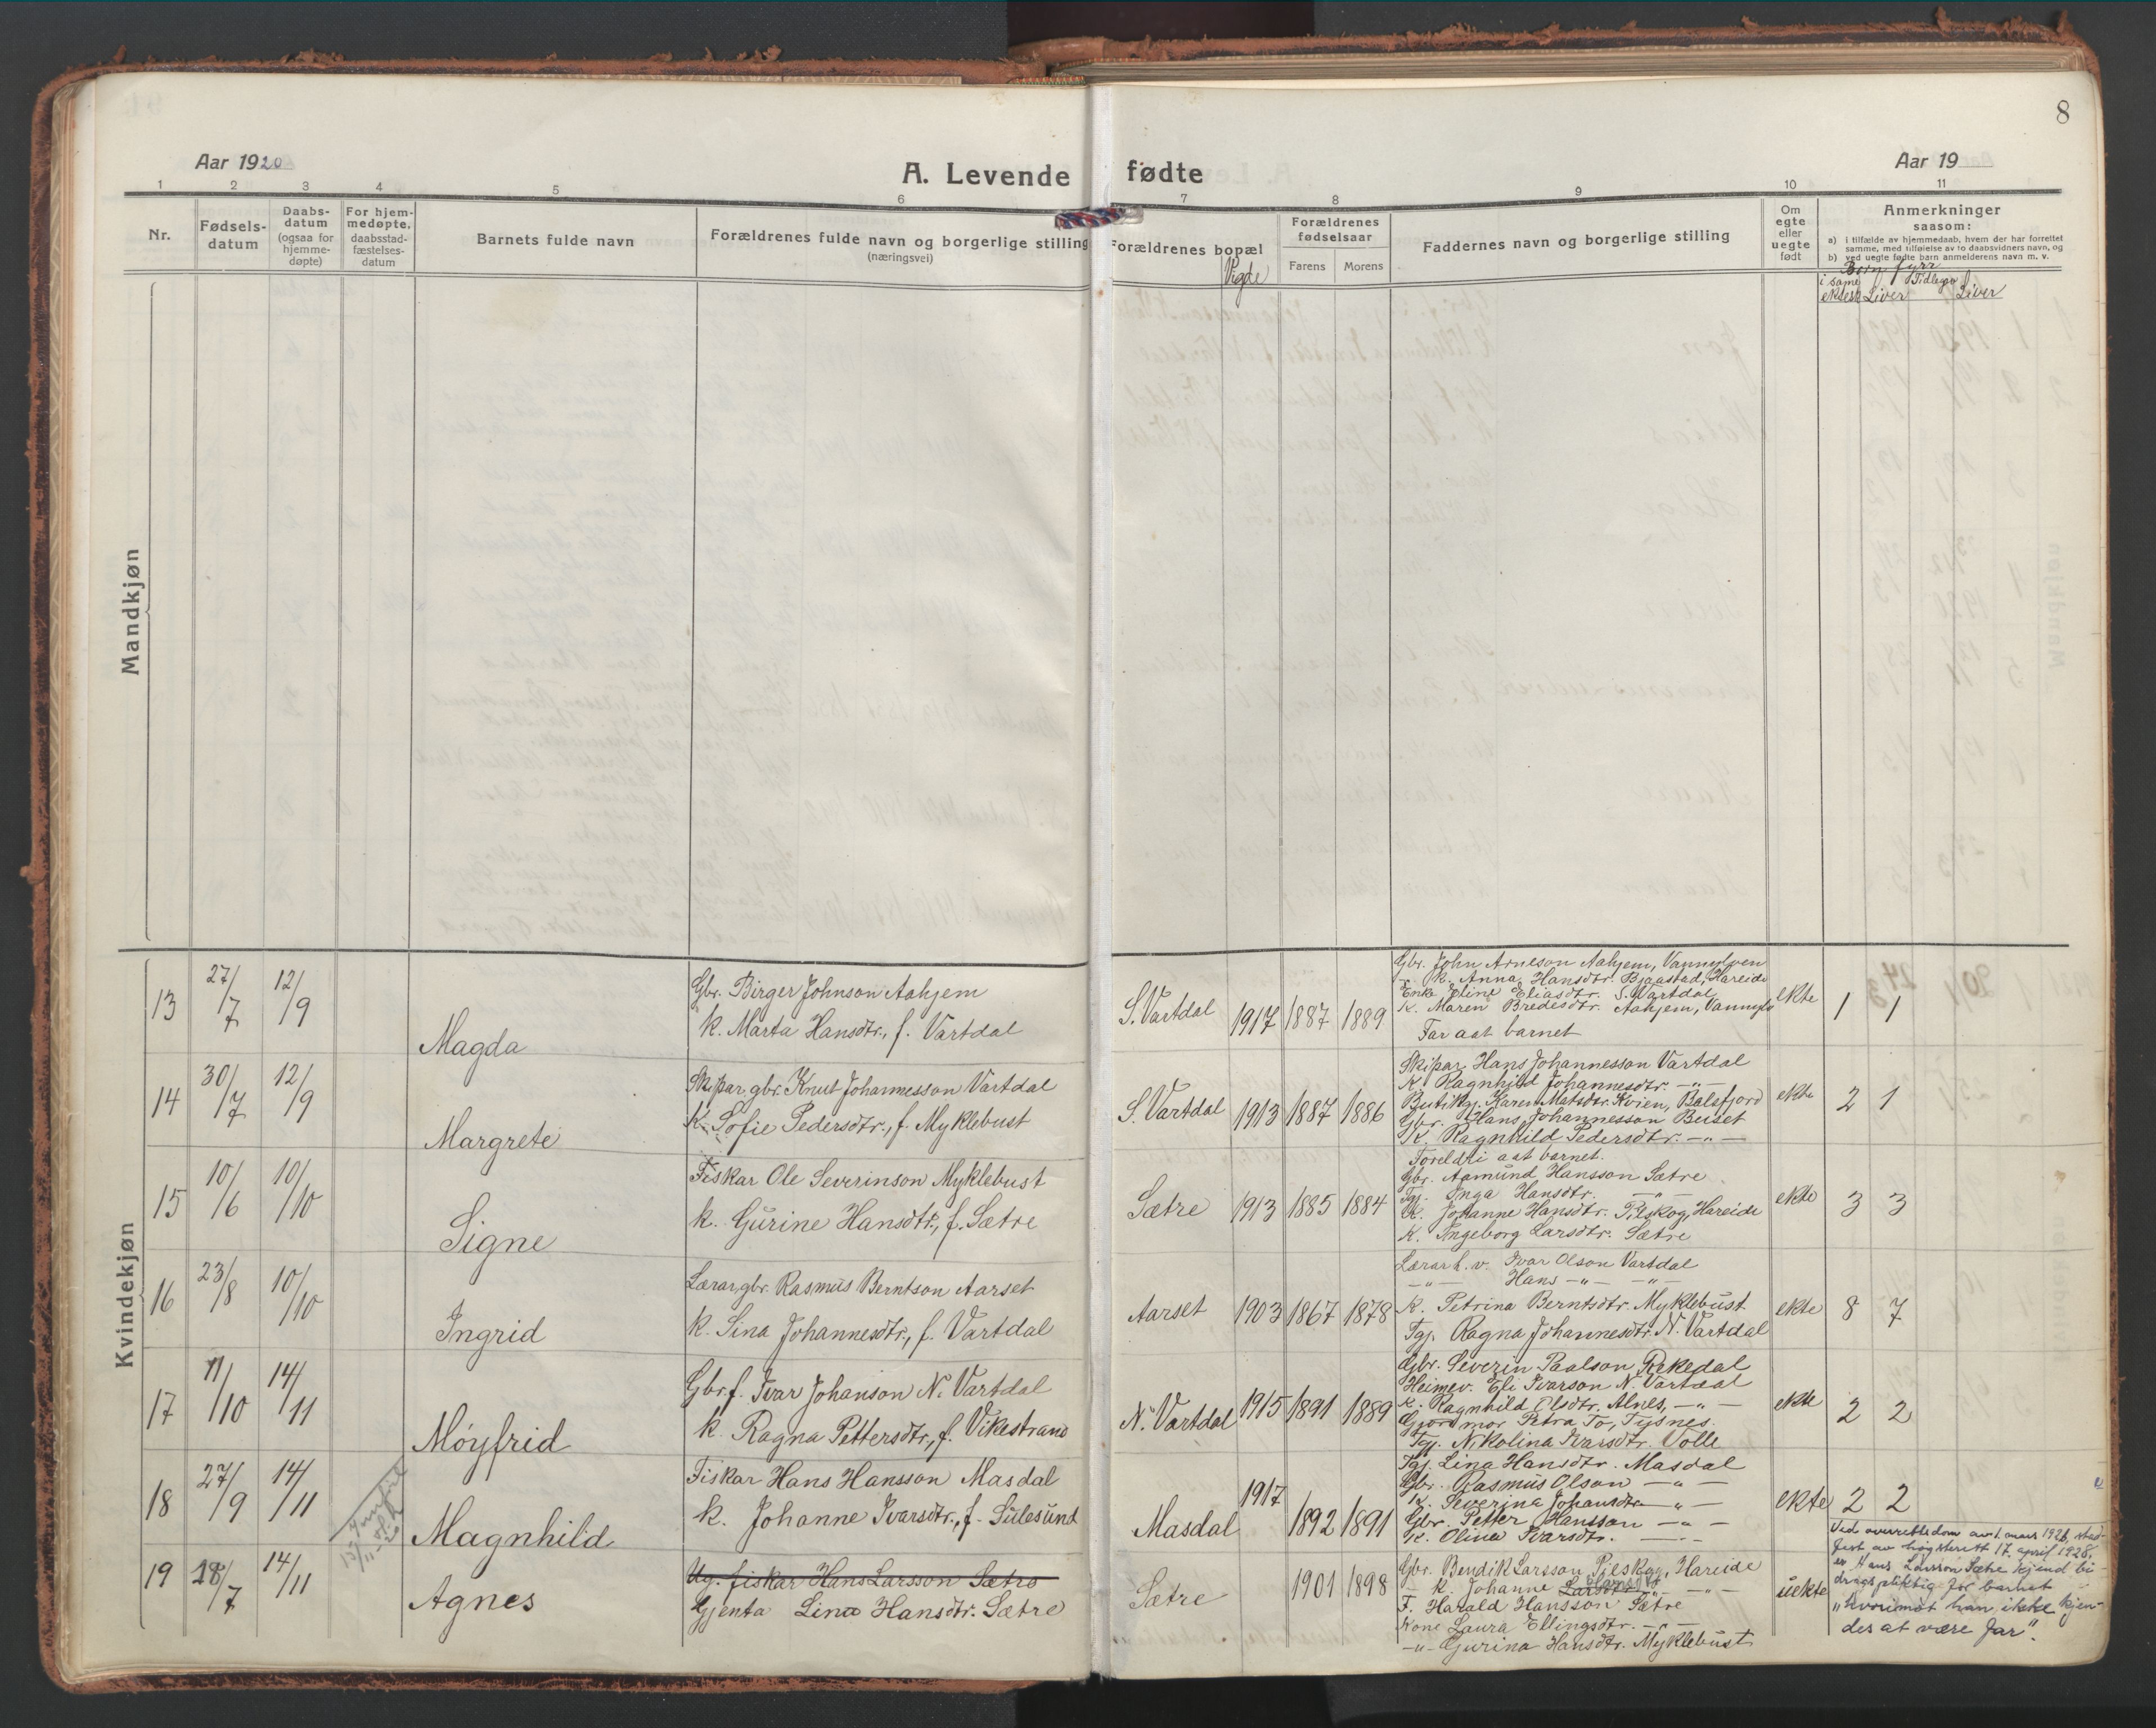 8
Aar 1920
A. Levende fødte
Aar 19
1 2 3 4 5 6 7 8 9 10 11
Nr.
Fødsels-
datum
Daabs-
datum
(ogsaa for
hjemme-
døpte)
For hjem-
medøpte,
daabsstad-
fæstelses-
datum
Barnets fulde navn
Forældrenes fulde navn og borgerlige stilling
(næringsvei)
Forældrenes bopæl
Vigde
Forældrenes
fødselsaar
Farens Morens
Faddernes navn og borgerlige stilling
Om
egte
eller
uegte
født
Anmerkninger
saasom:
a) i tilfælde av hjemmedaab, hvem der har forrettet
samme, med tilføielse av to daabsvidners navn, og
b) ved uegte fødte barn anmelderens navn m. v.
Born fyrr
i same Tidlegar
ektesk Liver Liver
Mandkjøn
Kvindekjøn
13 27/7 12/9 Magda
Gbr. Birger Johnson Aahjem
k. Marta Hansdtr., f. Vartdal
S. Vartdal 1917 1887 1889
Gbr. John Arneson Aahjem, Vannylven
k. Anna Hansdtr. Bjaastad, Hareide
Enke Eline Eliasdtr. S. Vartdal
K. Maren Bredesdtr. Aahjem, Vannylv
Far aat barnet
ekte 1 1
14 30/7 12/9 Margrete
Skipar, gbr. Knut Johannesson Vartdal
K. Sofie Pedersdtr., f. Myklebust
S. Vartdal 1913 1887 1886
Skipar Hans Johannesson Vartdal
K. Ragnhild Johannesdtr. —"—
Butikgj. Karen Matsdtr. Kvien, Balsfjord
Gbr. Hans Johannesson Buset
K. Ragnhild Pedersdtr. —"—
Foreldri aat barnet.
ekte 2 1
15 10/6 10/10 Signe
Fiskar Ole Severinson Myklebust
k. Gurine Hansdtr., f. Sætre
Sætre 1913 1885 1884
Gbr. Aamund Hansson Sætre
Tgj. Inga Hansdtr. —"—
K. Johanne Hansdtr. Pilskog, Hareide
K. Ingeborg Larsdtr. Sætre
ekte 3 3
16 23/8 10/10 Ingrid
Lærar, gbr. Rasmus Berntson Aarset
k. Sina Johannesdtr., f. Vartdal
Aarset 1903 1867 1878
Lærar h. v. Ivar Olson Vartdal
—"— Hans —"— —"—
K. Petrina Berntsdtr. Myklebust
Tgj. Ragna Johannesdtr. N. Vartdal
ekte 8 7
17 11/10 14/11 Møyfrid
Gbr. f. Ivar Johanson N. Vartdal
k. Ragna Pettersdtr., f. Vikestrand
N. Vartdal 1915 1891 1889
Gbr. Severin Paalson Rekedal
Heimev. Eli Ivarson N. Vartdal
K. Ragnhild Olsdtr. Alnes, —"—
Gjordmor Petra To, Tysnes.
Tgj. Nikolina Ivarsdtr. Volle
ekte 2 2
18 27/9 14/11 Magnhild
Fiskar Hans Hansson Masdal
k. Johanne Ivarsdtr., f. Sulesund
Masdal 1917 1892 1891
Tgj. Lina Hansdtr. Masdal
Gbr. Rasmus Olson —"—
K. Severina Johansdtr. —"—
Gbr. Petter Hansson —"—
K. Olina Ivarsdtr. —"—
ekte 2 2
19 18/7 14/11 Agnes
Ug. fiskar Hans Larsson Sætre
Gjenta Lina Hansdtr. Sætre
Sætre 1901 1898
Gbr. Bendik Larsson Pilskog, Hareide
k. Johanne Larsdtr. Hansdtr —"—
F. Harald Hansson Sætre
Kone Laura Ellingsdtr. —"—
—"— Gurina Hansdtr. Myklebust
uekte
Ved overrettsdom av 1. mars 1926, stad-
fest av høgsterett 17. april 1928,
er Hans Larsson Sætre kjend bi-
dragspliktig for barnet
"hvorimot han ikke kjen-
des at være far".